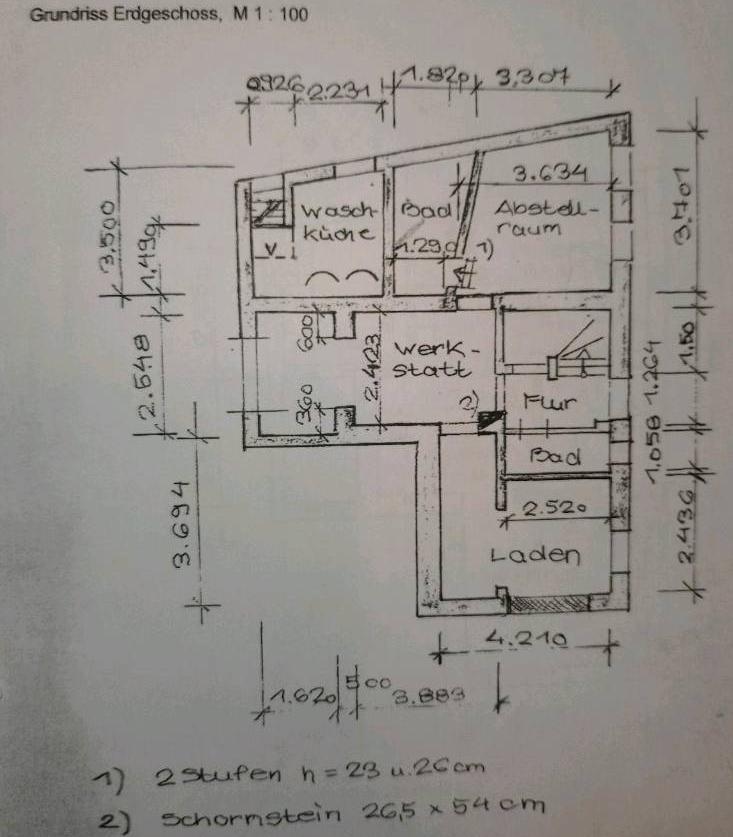 Grundriss Erdgeschoss, M 1 : 100
0.926 2.231 1.820 3,307
3.634
3,500
1,490
Wasch-
küche
Bad
Abstell-
raum
3.701
V
1.290
1)
2.548
600
360
2.423
Werk-
statt
2)
Flur
Bad
1.50
1.264
1.058
3.694
2.520
2.436
Laden
4.210
1.620 500 3.883
1) 2 Stufen h = 23 u. 26 cm
2) Schornstein 26,5 x 54 cm